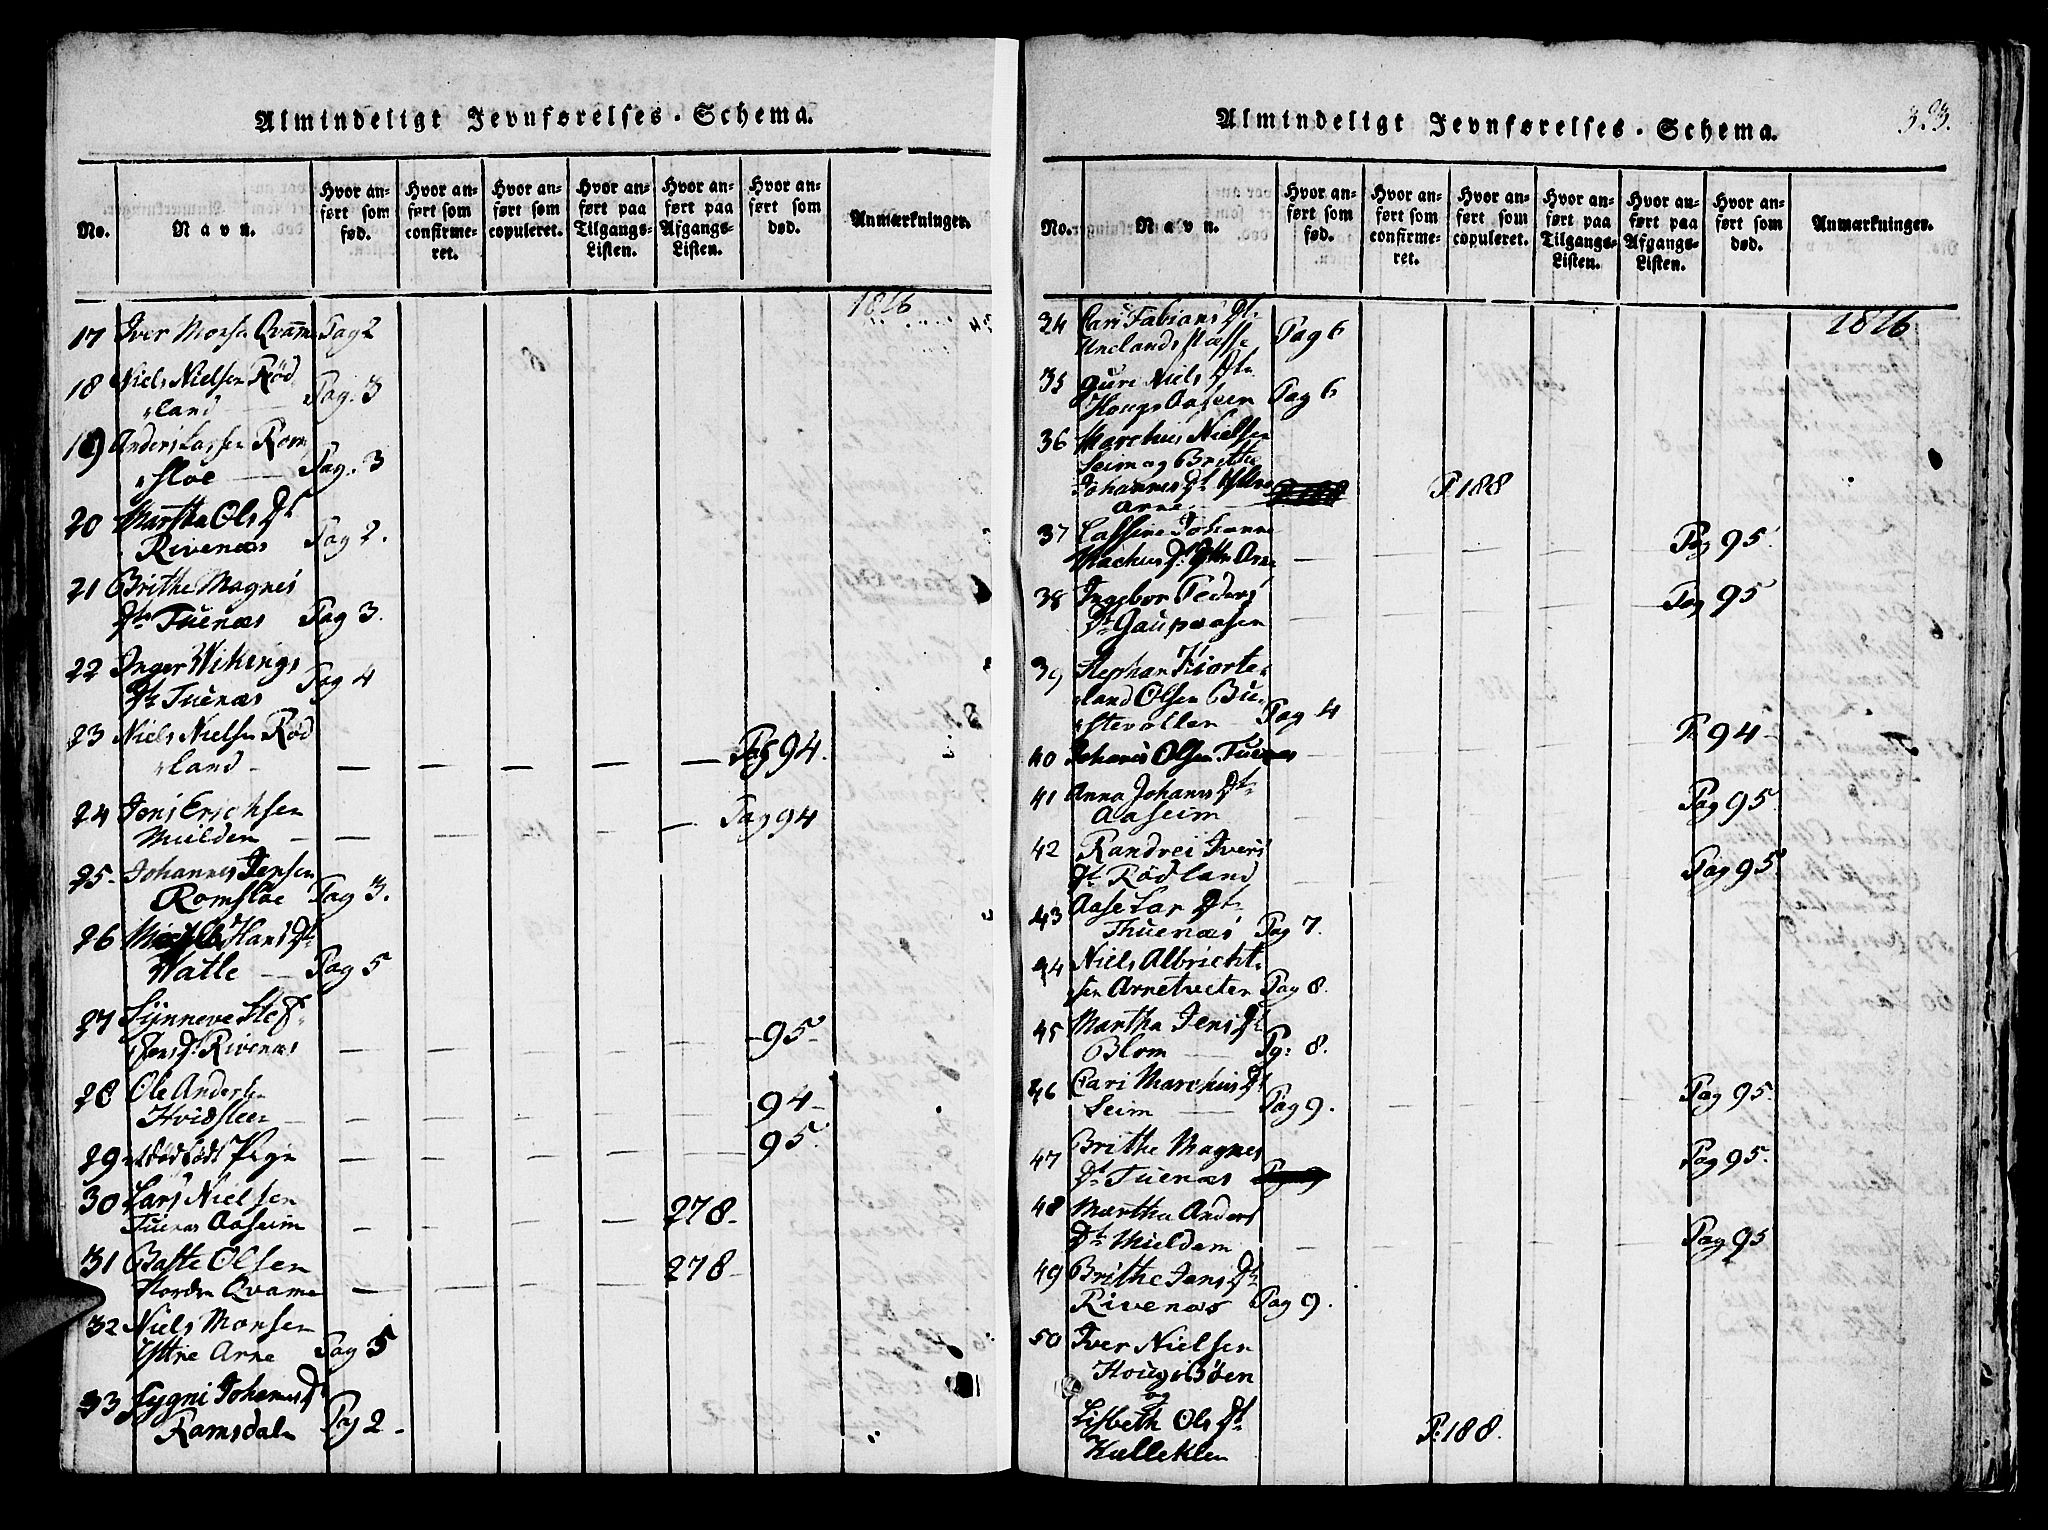 Almindeligt Jevnførelses-Schema.
No. Navn. Hvor anført som fød. Hvor anført som confirmeret. Hvor anført som copuleret. Hvor anført paa Tilgangs-Listen. Hvor anført paa Afgangs-Listen. Hvor anført som død. Anmærkninger.
1816
17 Iver Monsen Qvamme Pag 2
18 Niels Nielsen Rød
land Pag. 3
19 Anders Lassen Rom
sloe Pag. 3
20 Martha Ols Dt
Rivenæs Pag 2.
21 Brithe Magnes
Dtr Tuenæs Pag 3.
22 Inger Wikings
Dtr Tuenæs Pag 4
23 Niels Nielsen Rød
land - Pag 94.
24 Jens Erichsen
Muilden - Pag 94
25. Johannes Jensen
Romsloe Pag 3.
26 Hans Dtr
Watle Pag 5
27 Synneve Stef
fens Dt Rivenæs - 95
28 Ole Andersen
Hvidsteen - 94
29 - 95.
30 Lars Nielsen
Tuenæs Aaseim - 278.
31 Baste Olsen
Nordre Qvame - 278
32 Niels Monsen
Yttre Arne Pag 5
33 Sygni Johannes Dt
Ramsdale Pag 2.
Almindeligt Jevnførelses-Schema. 323.
No. Navn. Hvor anført som fød. Hvor anført som confirmeret. Hvor anført som copuleret. Hvor anført paa Tilgangs-Listen. Hvor anført paa Afgangs-Listen. Hvor anført som død. Anmærkninger.
1816
34 Cari Fabians Dt.
Unelands Pag 6
35 Guri Niels Dtr
Hougs Aaseen Pag 6
36 Marchus Nielsen
Seim og Brithe
Johannes Dt Ystre P. 188
Arne
37 Cassine Johanne
Machus Dt Yttre Arne - Pag 95.
38 Ingebor Peders
Dt Gaupaasen Pag 95
39 Stephan Kiorte
land Olsen Bu
stevollen Pag 4
40 Johanes Olsen Tuenæs P. 94
41 Anna Johanes Dtr
Aaseim Pag 95
42 Randvei Ivers
Dt. Rødland Pag 95
43 Aase Lar Dtr
Thuenæs Pag 7.
44 Niels Albricht
sen Arnetveten Pag 8.
45 Martha Jens Dt
Blom Pg: 8.
46 Cari Marchus Dt
Seim Pag 9. Pag 95.
47 Brithe Magnes
Dt Tuenæs Pag 95.
48 Martha Anders
Dt. Mieldem Pag 95
49 Brithe Jens Dtr
Rivenæs Pag 9.
50 Iver Nielsen
Hougs Bøen
og
Lisbeth Ols Dt.
Kulleklen P. 188.